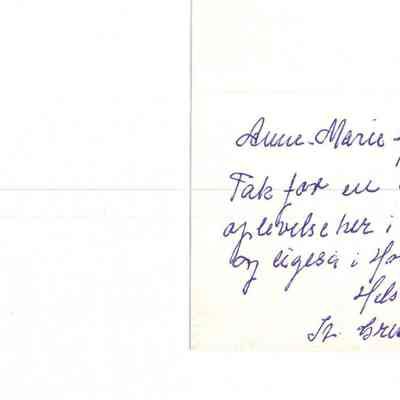 Anne-Marie
Tak for en
oplevelse her i
og ligeså i
Hils